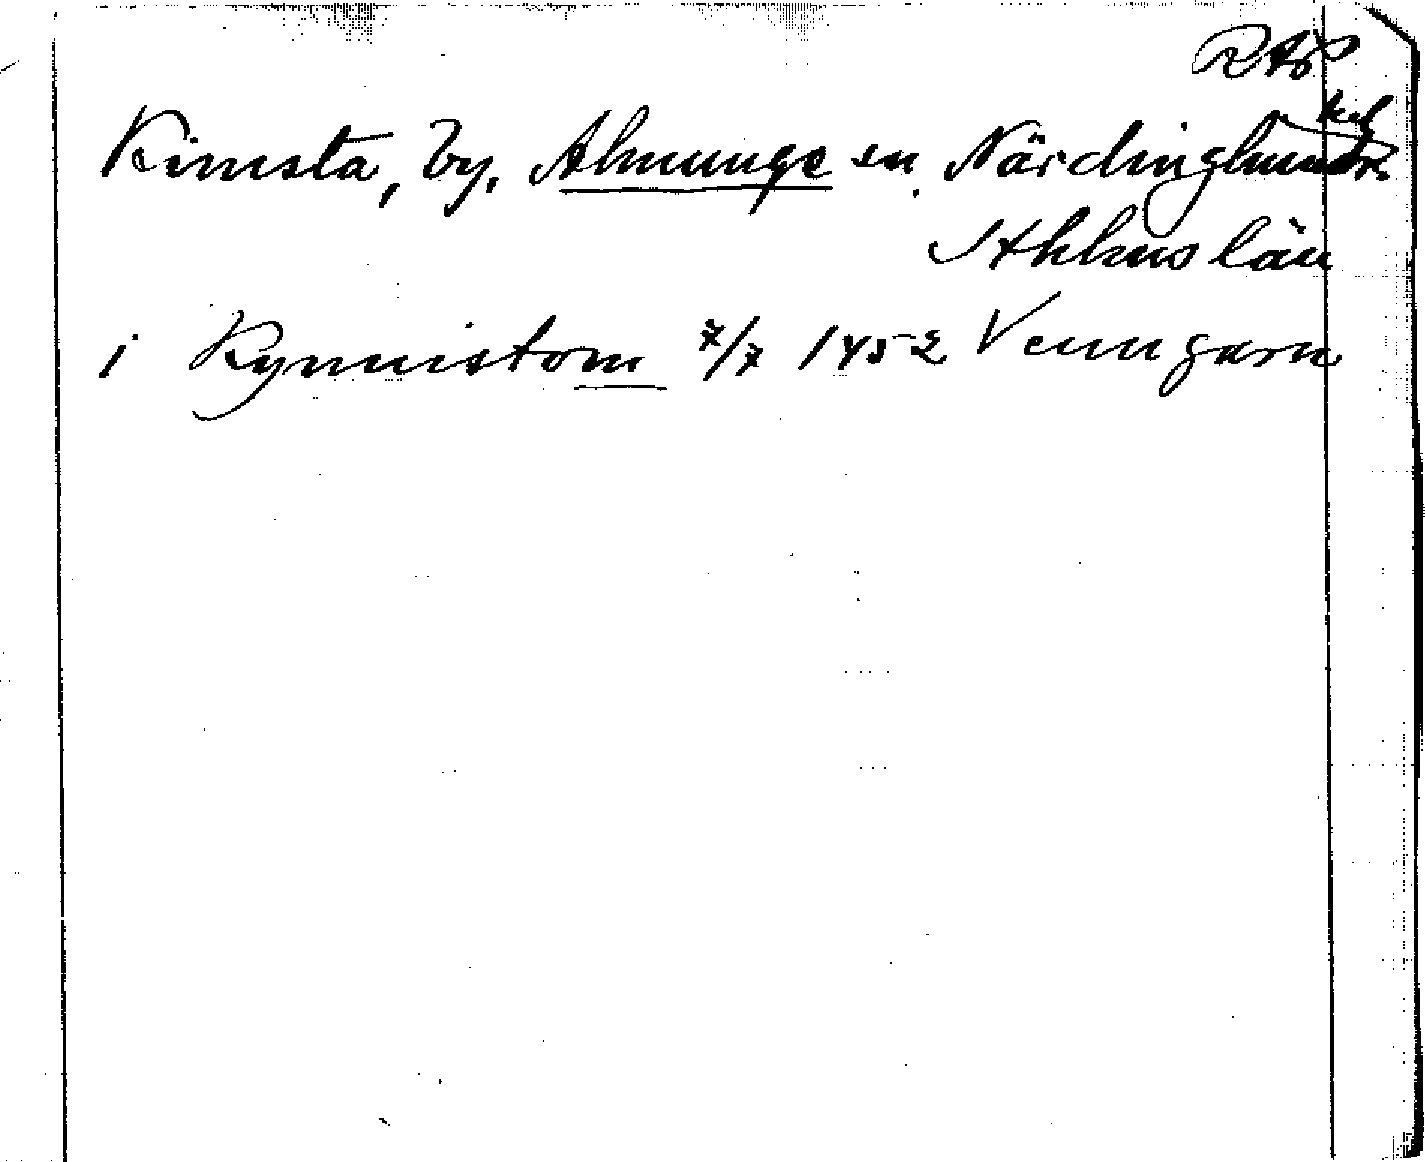 RAP
Kimsta, by, Almunge sn. Närdinghundr.
Sthlms län
i Kymmistom 7/7 1452 Venngarn